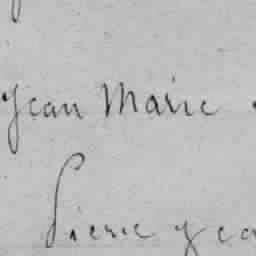 Jean Marie
Pierre Jea